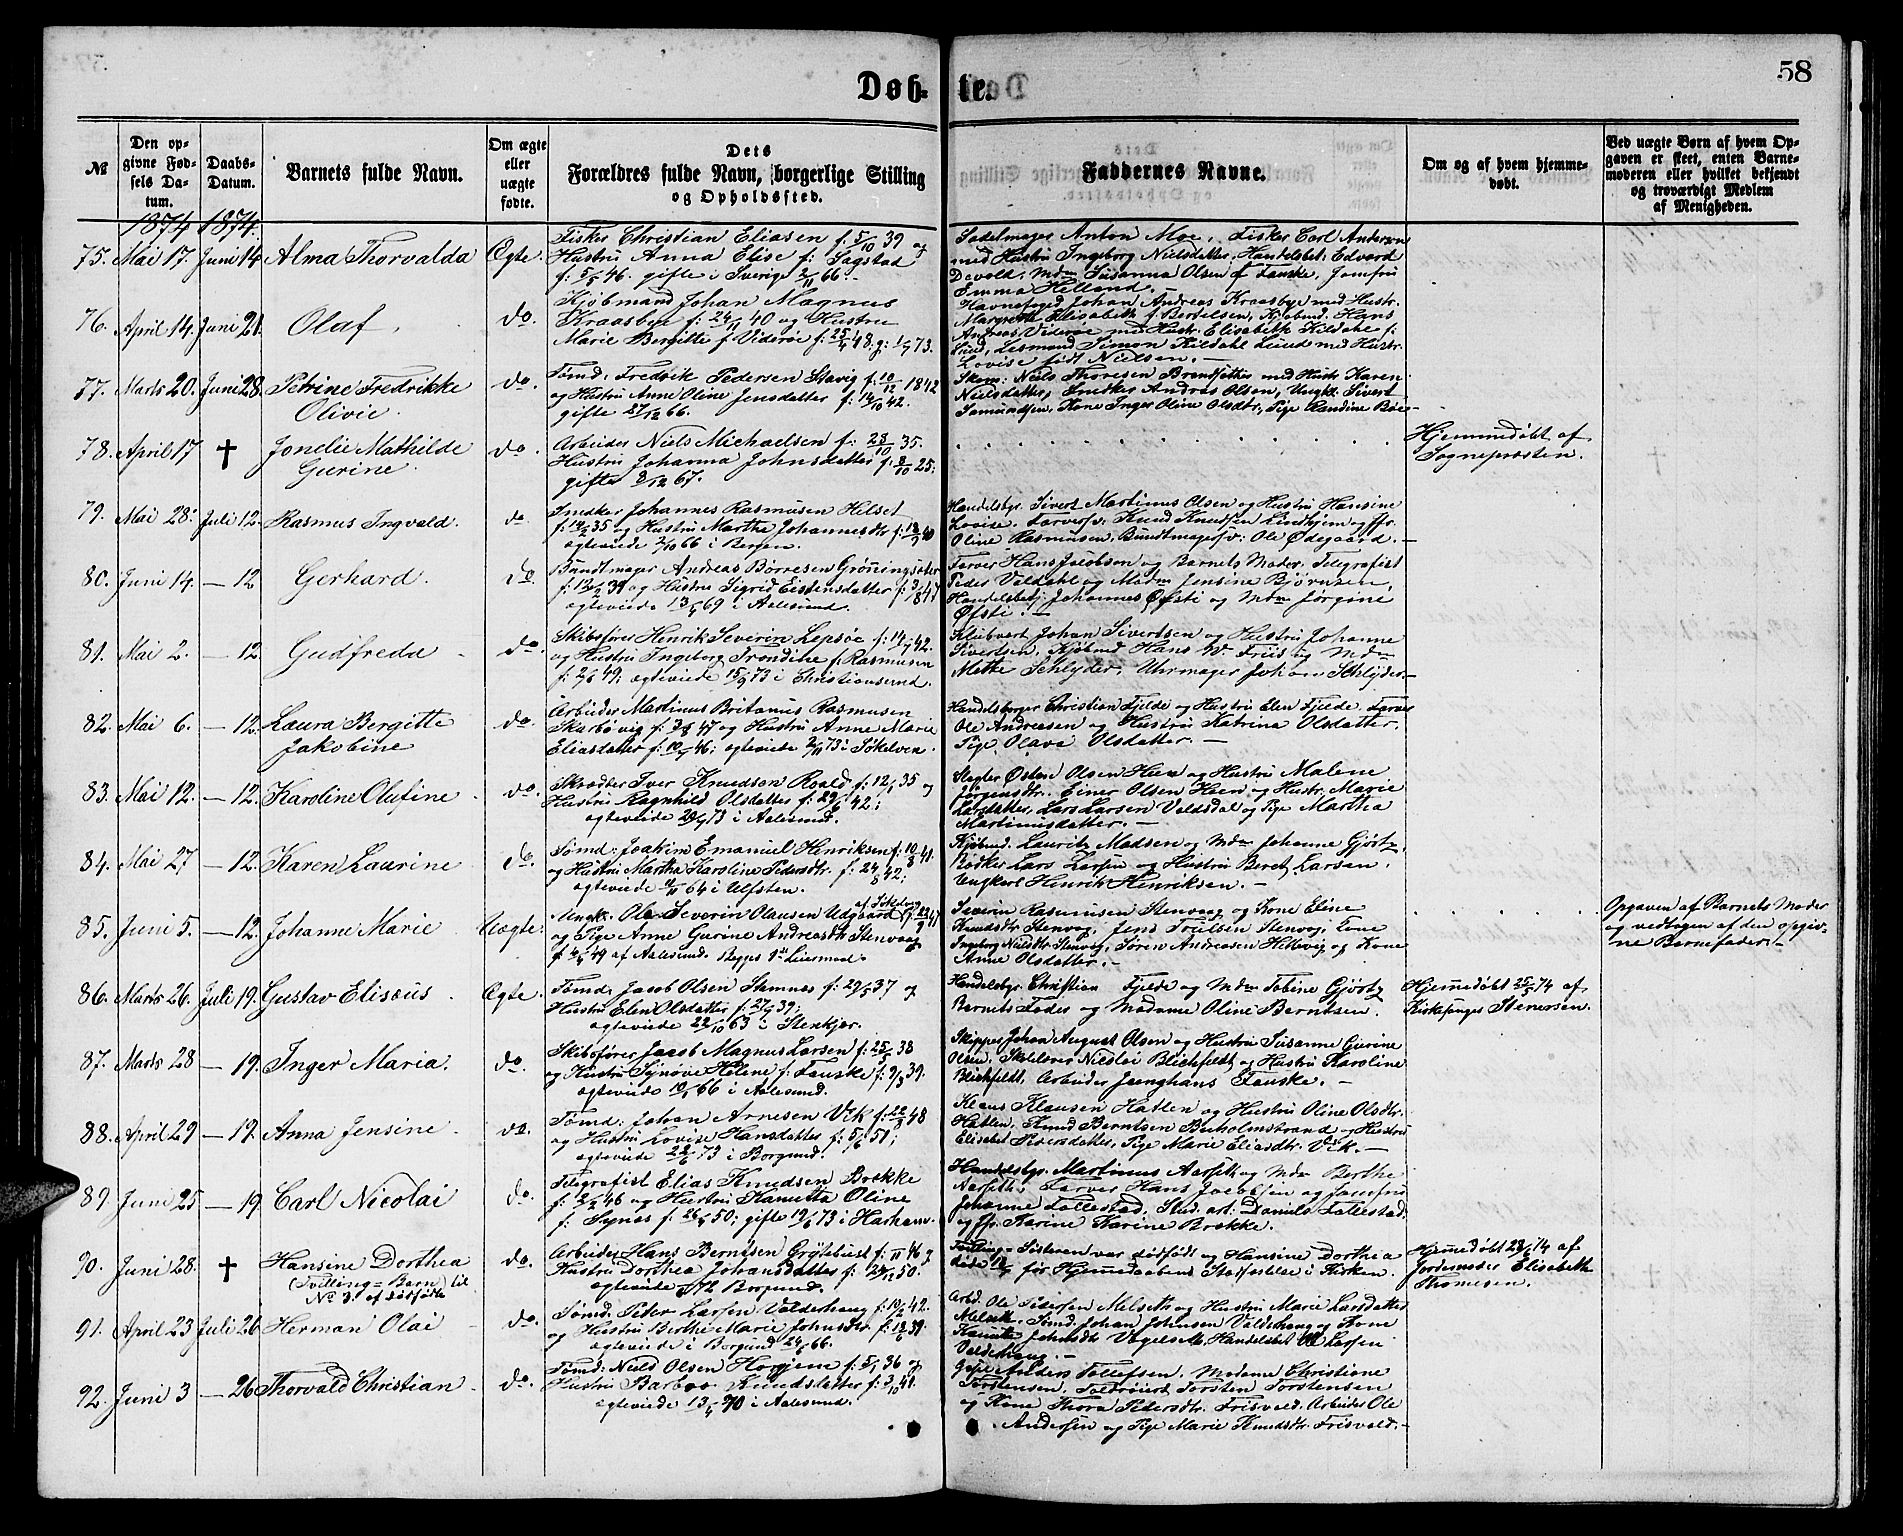 58
Døbte.
№
Den opgivne Fødsels Datum.
Daabs-Datum.
Barnets fulde Navn.
Om ægte eller uægte fødte.
Dets Forældres fulde Navn, borgerlige Stilling og Opholdssted.
Faddernes Navne.
Om og af hvem hjemmedøbt.
Ved uægte Børn af hvem Opgaven er skeet, enten Barnemoderen eller hvilket bekjendt og troværdigt Medlem af Menigheden.
1874 1874.
75. Mai 17. Juni 14 Alma Thorvalda Ægte.
Fisker Christian Eliasen f: 5/10 39 og
Hustru Anna Elise f: Sagstad
gifte i Sverige 2/11 66.
Sadelmager Anton Moe, Fisker Carl Andersen
med Hustru Ingeborg Nielsdatter, Handelsbet. Edvard
Devold, Mdm Susanna Olsen f Fauske, Jomfru
Emma Helland.
76. April 14. Juni 21. Olaf do.
Kjøbmand Johan Magnus
Kraasbye f: 24/11 40 og Hustru
Marie Bergitte f Viderøe f: 25/4 48. g: 1/7 73.
Havnefoged Johan Andreas Kraasbye med Hustr.
Margrethe Elisabeth f. Bertelsen, Kjøbmd. Hans
Andreas Viderøe med Hustr. Elisabeth Kildahl f:
Lund, Lesmand Simon Kildahl Lund med Hustr.
Lovise født Nielsen.
77. Marts 20. Juni 28. Petrine Fredrikke do.
Olivie.
Tømd. Fredrik Pedersen Slavig f: 10/12 1842
og Hustru Anne Oline Jensdatter f: 14/10 42.
gifte 27/12 66.
Skom: Niels Thoresen Brandsetter med Hustr Karen
Nielsdatter, Snedker Andreas Olsen, Ungk. Sivert
Samundsen, Kone Inger Oline Olsdtr, Pige Randine Bøe
78. April 17 † Jonelie Mathilde do.
Gurine.
Arbeider Niels Michaelsen f: 23/10 35.
Hustru Johanna Johnsdatter f: 8/10 25;
gifte 67.
Hjemmedøbt af
Sognepræsten.
79. Mai 28. Juli 12. Rasmus Ingvald. do
Snedker Johannes Rasmusen Hilset
f: 14/2 35 og Hustru Marthe Johannesdtr f: 18/9 40
ægteviede 7/10 66 i Bergen.
Handelsbgr. Sivert Martinus Olsen og Hustru Hansine
Lovise. Farversv. Knud Knudsen Lindhjem og Jfr.
Oline Rasmussen. Bundtmagersv: Ole Ødegaard.
80. Juni 14. — 12 Gerhard. do
Bundtmager Andreas Børresen Grønningsæter
f: 12/2 39 og Hustru Sigrid Eistensdatter f: 3/8 47
ægteviede 13/5 69 i Aalesund.
Farver Hans Jacobsen og Barnets Moder, Telegrafist
Peder Valdahl og Madm Jensine Bjørnsen,
Handelsbetj. Johannes Øfsti og Mdm Jørgine
Øfsti.
81. Mai 2. — 12. Gudfreda do.
Skibsfører Henrik Severin Lepsøe f: 14/7 42.
og Hustru Ingeborg Trondine f: Rasmusen
f: 2/6 49; ægteviede 13/9 73 i Christiansund.
Klubvert Johan Sivertsen og Hustru Johanne
Sivertsen, Kjøbmd Hans W. Friis og Mdm
Mette Schlyder, Uhrmager Johan Schlyder.
82. Mai 6. — 12. Laura Bergitte do.
Jakobine
Arbeider Martinus Britanus Rasmusen
Skarbøvig f: 7/8 47 og Hustru Anne Marie
Eliasdatter f: 10/5 46; ægteviede 2/11 73 i Søkelven.
Handelsborger Christian Fjelde og Hustru Elen Fjelde. Farver
Ole Andreasen og Hustru Katrina Olsdatter.
Pige Olave Olsdatter.
83. Mai 12. — 12. Karoline Olufine do.
Skrædder Iver Knudsen Roald f: 12/1 35 og
Hustru Ragnhild Olsdatter f: 29/6 42;
ægteviede 73 i Aalesund.
Slagter Østen Olsen Huen og Hustru Malene
Jørgensdtr. Einer Olsen Huen og Hustr. Marie
Larsdatter, Lars Larsen Valdsdal og Pige Martha
Martinusdatter.
84. Mai 27 — 12. Karen Laurine do.
Tømd: Joakim Emanuel Henriksen f: 10/3 41.
og Hustru Martha Karoline Pedersdtr. f: 24/8 42;
ægteviede 64 i Ulfsten.
Kjøbmd. Lauritz Madsen og Mdm Johanne Gjørtz,
Bødker Lars Larsen og Hustru Beret Larsen.
Ungkarl Henrik Henriksen.
85. Juni 5. — 12. Johanne Marie Uægte.
Ungk. Ole Severin Olausen Udgaard
og Pige Anne Gurine Andreasdtr Stenvaag
f: 49 af Aalesund. Begges 1ste Leiermaal.
Severin Rasmusen Stenvaag og Kone Eline
Knudsdtr Stenvog, Jens Troelsen Stenvog, Kone
Ingeborg Nielsdtr Stenvog, Søren Andreasen Hellevig og Kone
Anne Olsdatter.
Opgaven af Barnets Moder
og vedtagen af den opgiv-
ne Barnefader.
86. Marts 26. Juli 19. Gustav Elisæus Ægte.
Tømd. Jacob Olsen Stamnes f: 29/5 37 og
Hustru Elen Olsdatter f: 27/9 39;
ægteviede 22/10 63 i Stenkjær.
Handelsbgr. Christian Fjelde og Mdm Tobine Gjørtz
Barnets Fader og Madame Oline Berntsen.
Hjemedøbt 25/5 74 af
Kirkesanger Stenersen.
87. Marts 28 — 19. Inger Maria. do.
Skibsfører Jacob Magnus Larsen f: 25/3 38
og Hustru Synøve Helene f: Fauske f: 9/3 39.
ægteviede 66 i Aalesund.
Skipper Johan August Olsen og Hustru Susanne Gurine
Olsen. Skolelærer Nicolai Blichfeldt og Hustru Karoline
Blichfeldt, Arbeider Jaenghans Fauske.
88. April 29 — 19. Anna Jensine do.
Tømd: Johan Arnesen Vik f: 22/3 48
og Hustru Lovise Hansdatter f: 5/6 51;
ægteviede 22/6 73 i Borgund.
Klaus Klausen Hatlen og Hustru Oline Olsdtr.
Hatlen. Knud Berntsen Buholmstrand og Hustru
Elisabet Pedersdatter, Pige Marie Eliasdtr. Vik.
89. Juni 25 — 19. Carl Nicolai do.
Telegrafist Elias Knudsen Brække
f: 2/2 46 og Hustru Kanutta Oline
f: Synes f: 26/5 50; gifte 19/6 73 i Harham.
Handelsbgr. Martinus Aarseth og Mdm Berthe
Aarseth; Farver Hans Jacobsen og Jomfru
Johanne Tollestad, Stud. art: Daniel Follestad
og Jfr. Karine Karine Brekke.
90. Juni 28. † Hansine Dorthea do.
(Tvilling-Barn) til
No 3. af dødfødte
Arbeider Hans Berntsen Grytebust f: 46 og
Hustru Dorthea Johansdatter f: 50.
ægteviede 72 Borgund.
Tvilling-Søsteren var dødfødt og Hansine Dorthea
døde før Hjemedaabens Stadfæstelse i Kirken.
Hjemedøbt 28/6 74 af
Jordemoder Elisabeth
Thomesen.
91. April 23 Juli 26 Herman Olai do.
Tømd. Peter Larsen Valderhaug f: 19/2 42.
og Hustru Berthe Marie Johnsdtr f: 39.
ægteviede i Borgund 66.
Arbd. Ole Pedersen Melseth og Hustru Marie Larsdatter
Melseth. Tømd. Johan Johnsen Valdehaug og Kone
Kanutte Johnsdtr Vegelseth. Handelsbet Ole Larsen
Valdehaug.
92. Juni 3 — 26 Thorvald Christian do.
Tømd: Nield Olsen Horgjem f: 5/1 36 og
Hustru Barbro Knudsdatter f: 3/10 41.
ægteviede 13/4 70 i Aalesund.
Anders Tollefsen, Madame Christiane
Torstensen, Toldrører Torsten Torstensen
og Kone Thora Pedersdtr. Frisvold. Arbeider Ole
Andersen og Pige Marie Knudsdtr. Frisvold.